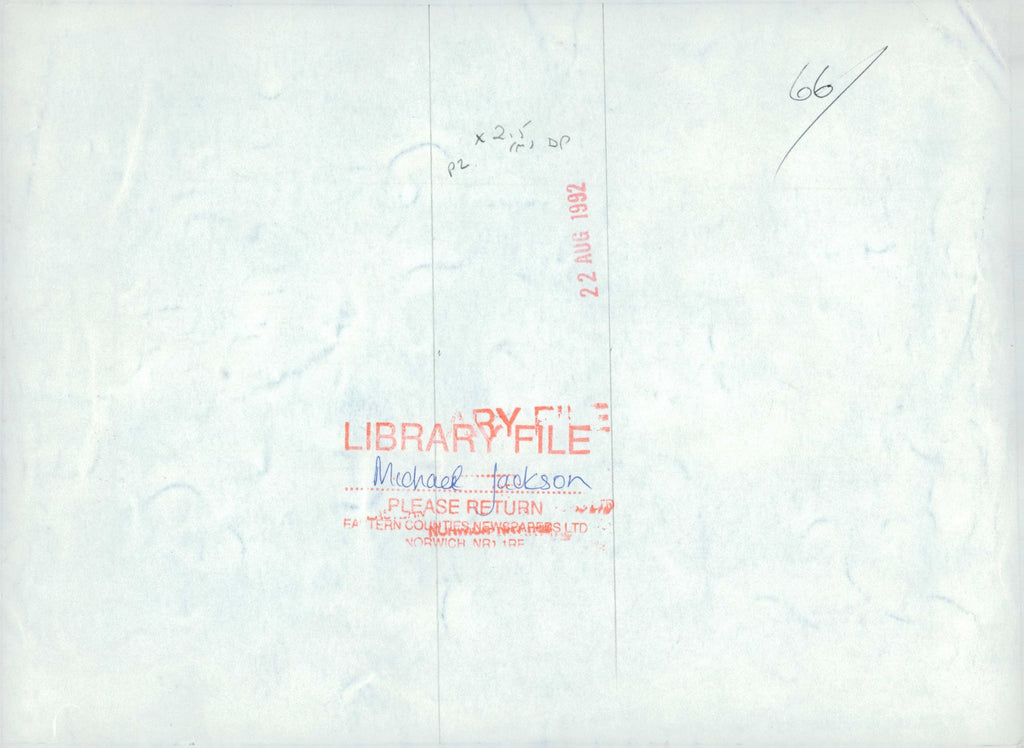 66/
x 2.5
P2
22 AUG 1992
LIBRARY FILE
Michael Jackson
PLEASE RETURN
EASTERN COUNTIES NEWSPAPERS LTD
NORWICH NR1 1RE